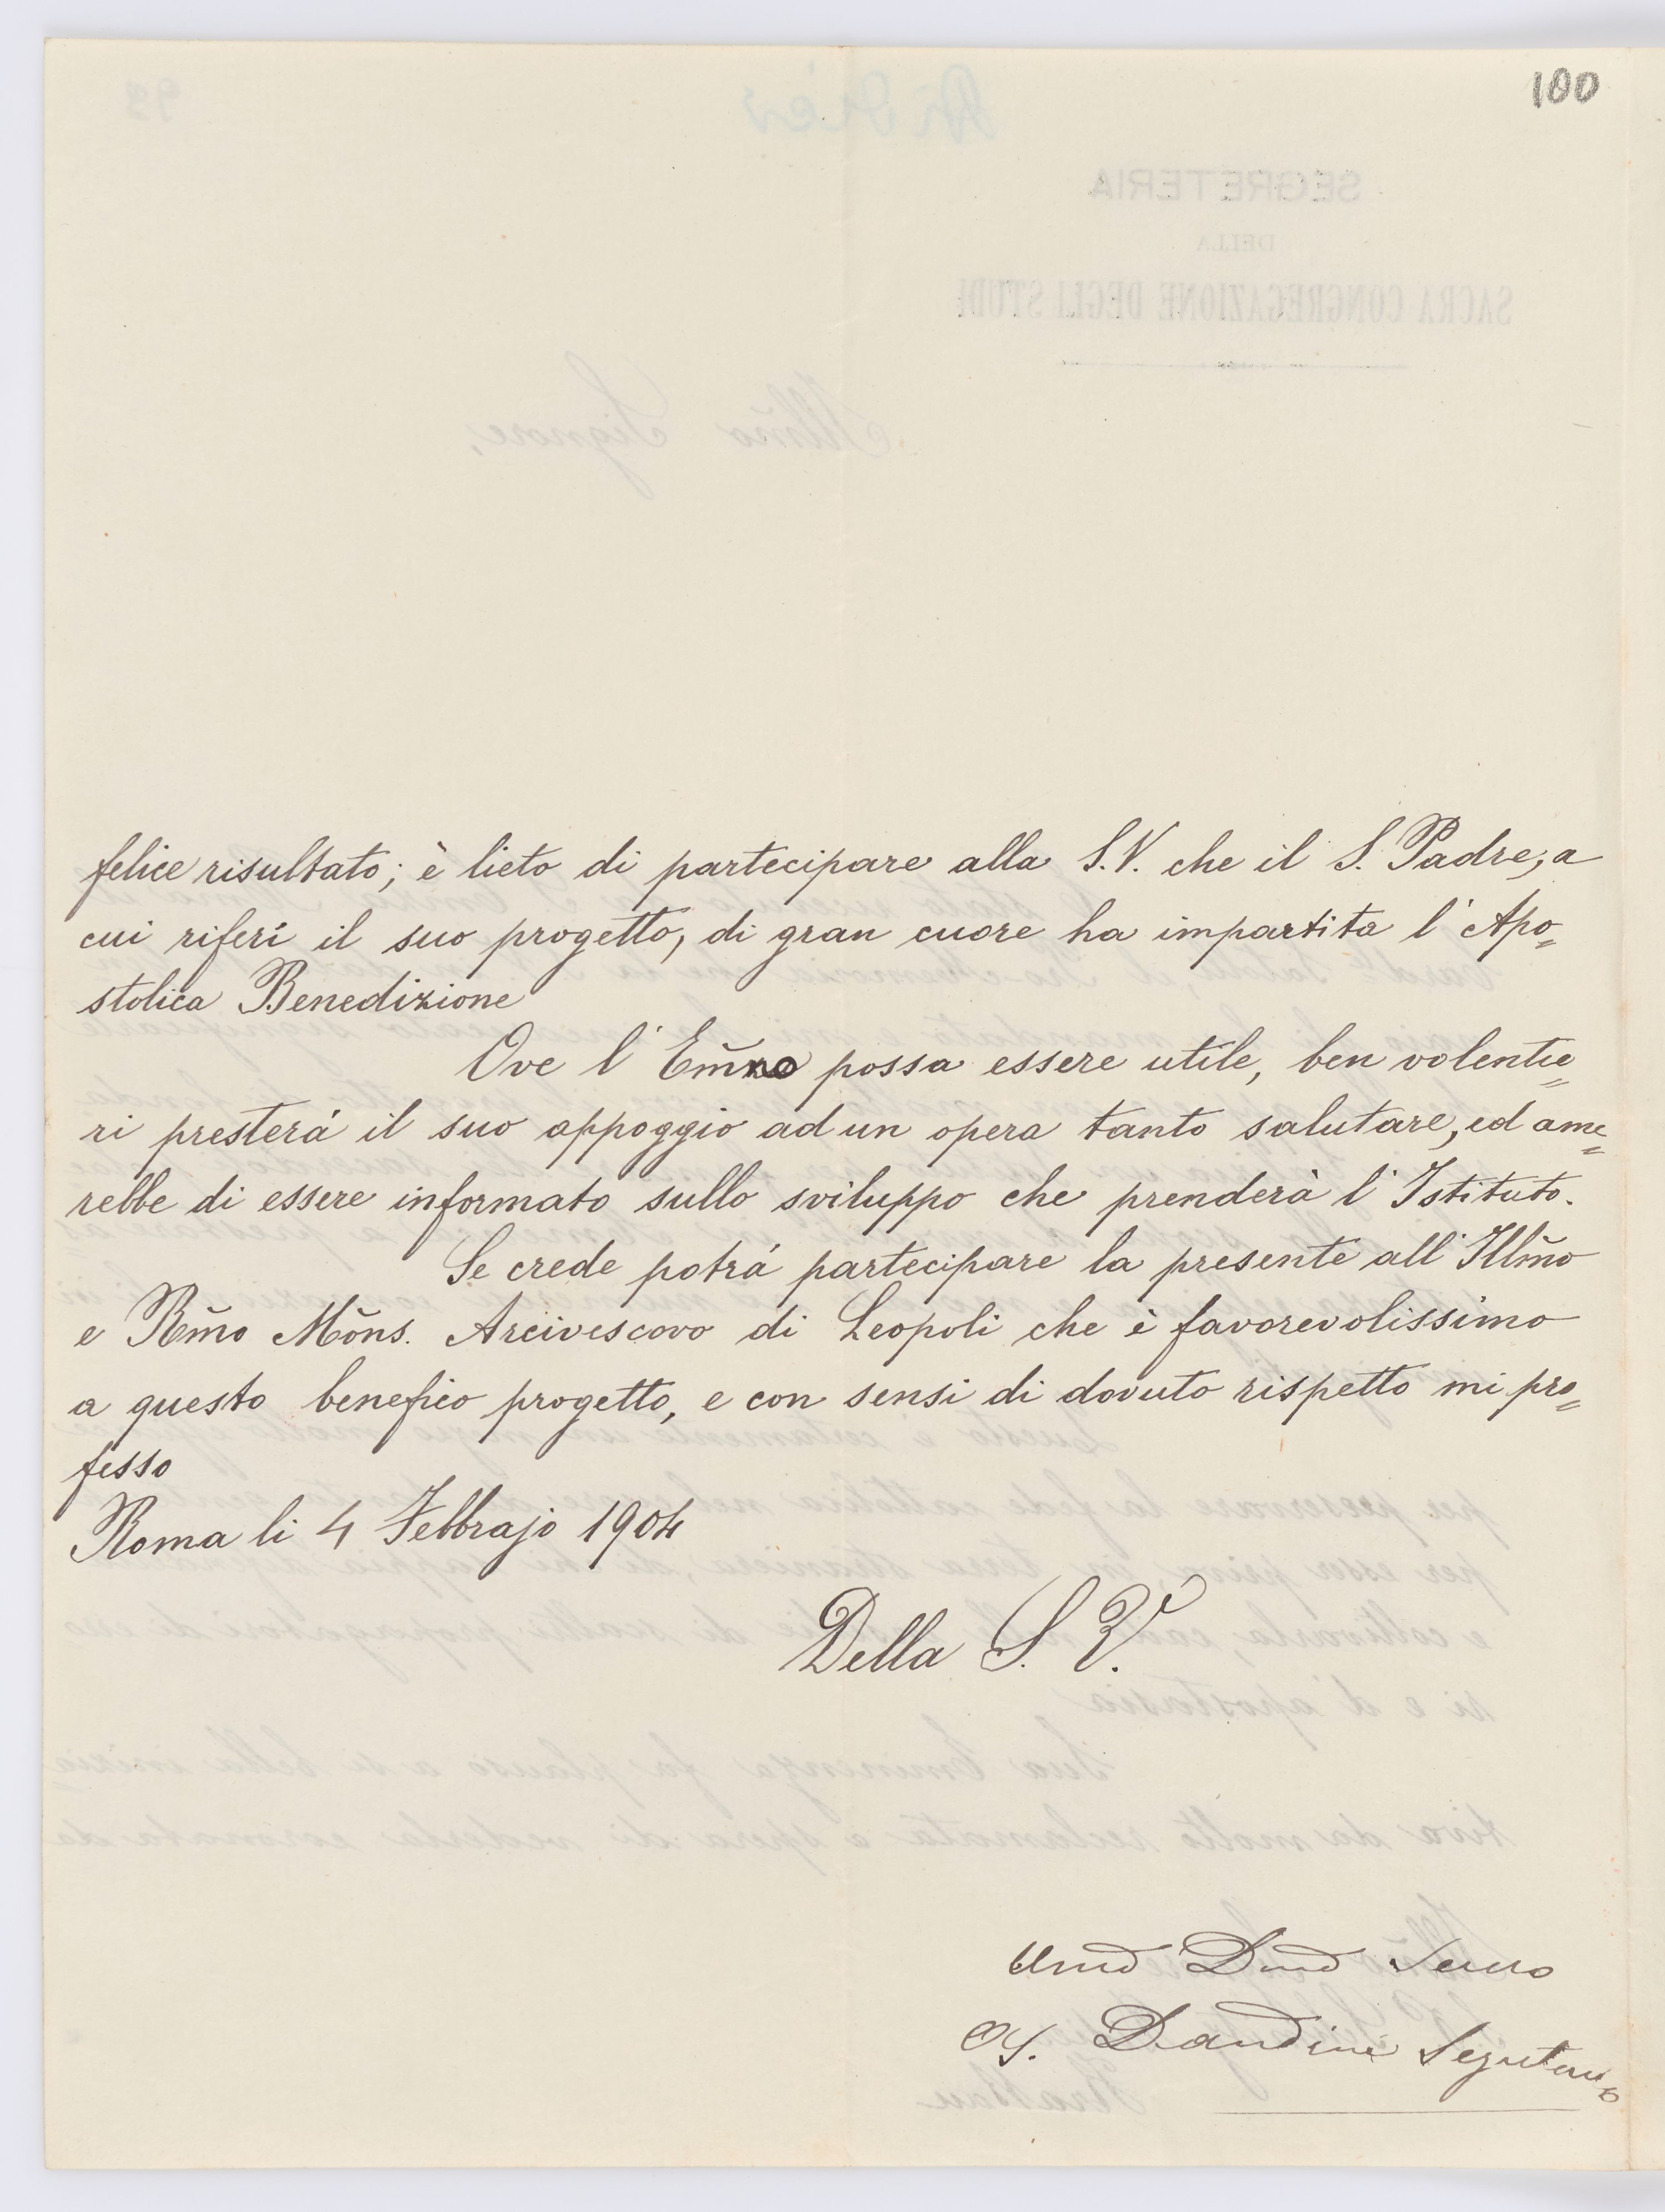 100
felice risultato; è lieto di partecipare alla S.V. che il S. Padre, a
cui riferí il suo progetto, di gran cuore ha impartita l'Apo=
stolica Benedizione
Ove l'Em̃no possa essere utile, ben volentie=
ri presterá il suo appoggio ad un opera tanto salutare, ed ame=
rebbe di essere informato sullo sviluppo che prenderà l'Istituto.
Se crede potrá partecipare la presente all'Illm̃o
e Rm̃o Mõns. Arcivescovo di Leopoli che è favorevolissimo
a questo benefico progetto, e con sensi di dovuto rispetto mi pro=
fesso
Roma li 4 Febbrajo 1904
Della S. V.
Dandini Segretario